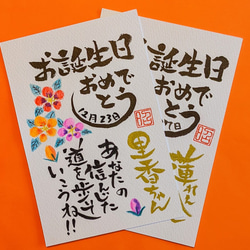 お誕生日
おめで
とう
2月23日
里香ちゃん
あなたの
信んじた
道を歩んで
いこうね!!
お誕生日
おめで
とう
7日
蓮くん